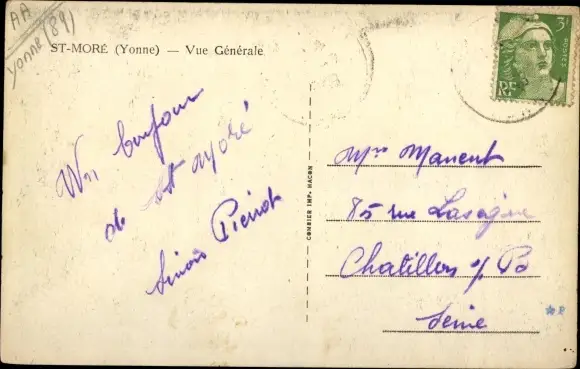 AA
Yonne (89)
ST-MORÉ (Yonne) — Vue Générale
3F
POSTES
RF
Un bonjour
de St Moré
Pierrot
COMBIER IMP. MACON
Mme Manent
85 rue Lasègne
Chatillon s/ B
Seine